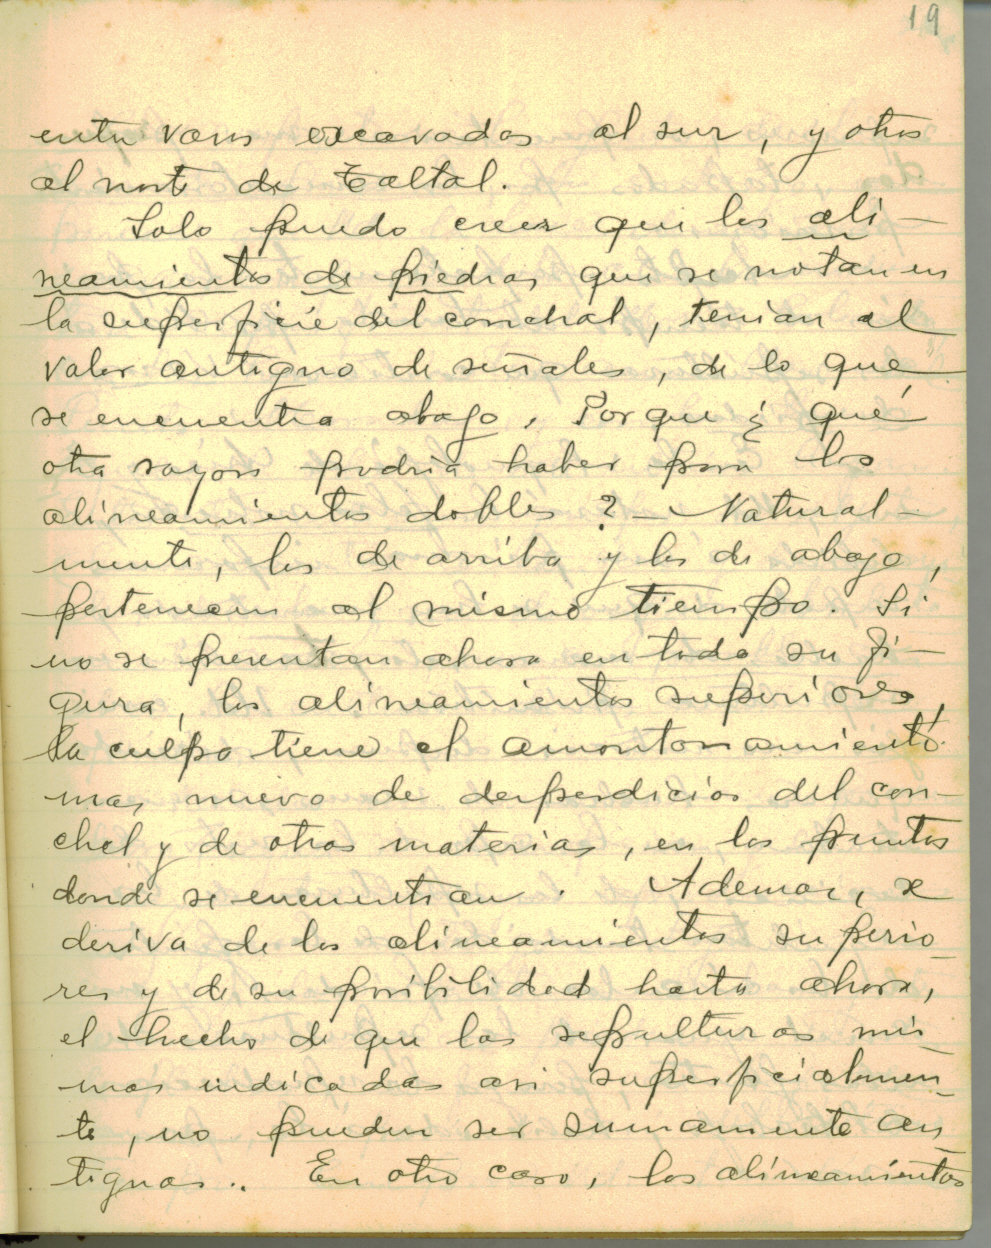 19
entre varios excavados al sur, y otros
al norte de Taltal.
Solo puedo creer que los ali-
neamientos de piedras que se notan en
la superficie del conchal, tenian el
valor antiguo de señales, de lo que
se encuentra abajo. Porque ¿ qué
otra rayon podria haber para los
alineamientos dobles ? - Natural-
mente, los de arriba y los de abajo,
pertenecen al mismo tiempo. Si
no se presentan ahora en toda su fi-
gura, los alineamientos superiores,
la culpa tiene el amontonamiento
mas nuevo de desperdicios del con-
chal y de otras materias, en los puntos
donde se encuentran. Ademas, se
deriva de los alineamientos superio-
res y de su posibilidad hasta ahora,
el hecho de que las sepulturas mis-
mas indicadas asi superficialmen-
te, no pueden ser sumamente an-
tiguas.. En otro caso, los alineamientos